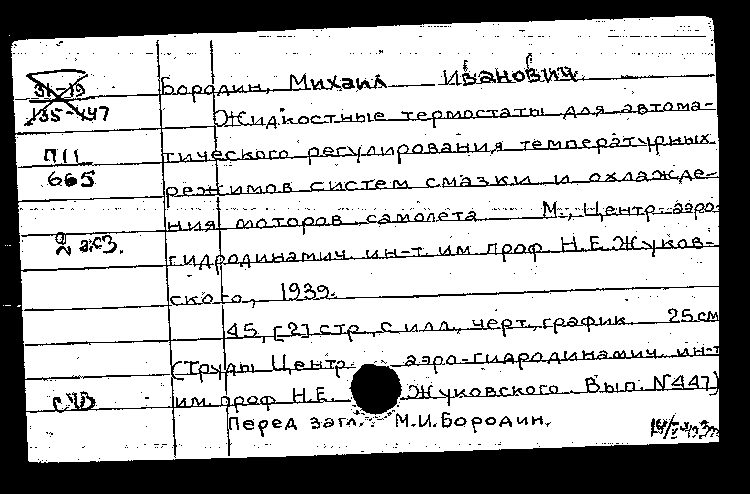 31-19
135-447
П11
665
2 экз.
Бородин, Михаил Иванович.
Жидкостные термостаты для автома-
тического регулирования температурных
режимов систем смазки и охлажде-
ния моторов самолета М., Центр. аэро-
гидродинамич. ин-т. им. проф. Н.Е. Жуков-
ского, 1939.
45, [2] стр., с илл., черт., график. 25 см
(Труды Центр. аэро-гидродинамич. ин-т
им. проф. Н.Е. Жуковского. Вып. N447)
Перед загл.: М.И. Бородин.